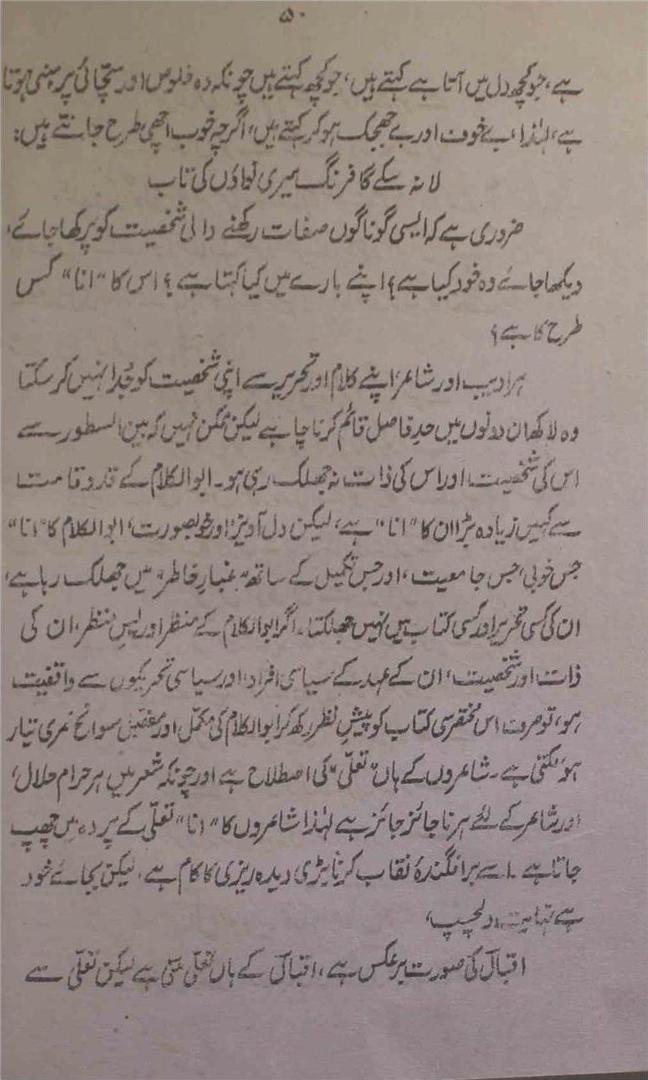 ۵۰
ہے، جو کچھ دل میں آتا ہے کہتے ہیں، جو کچھ کہتے ہیں چونکہ وہ خلوص اور سچائی پر مبنی ہوتا
ہے، لہٰذا، بے خوف اور بے جھجک ہو کر کہتے ہیں، اگرچہ خوب اچھی طرح جانتے ہیں:
لا نہ سکے گا فرنگ میری نواؤں کی تاب
ضروری ہے کہ ایسی گوناگوں صفات رکھنے والی شخصیت کو پرکھا جائے،
دیکھا جائے وہ خود کیا ہے؟ اپنے بارے میں کیا کہتا ہے؟ اس کا "انا" کس
طرح کا ہے؟
ہر ادیب اور شاعر اپنے کلام اور تحریر سے اپنی شخصیت کو جُدا نہیں کر سکتا
وہ لاکھ ان دونوں میں حدِ فاصل قائم کرنا چاہے لیکن ممکن نہیں کہ بین السطور سے
اس کی شخصیت اور اس کی ذات نہ جھلک رہی ہو۔ ابوالکلام کے قد و قامت
سے کہیں زیادہ بڑا ان کا "انا" ہے، لیکن دل آویز اور خوبصورت، ابوالکلام کا "انا"
جس خوبی، جس جامعیت، اور جس تکمیل کے ساتھ "غبارِ خاطر" میں جھلک رہا ہے،
ان کی کسی تحریر اور کسی کتاب میں نہیں جھلکتا۔ اگر ابوالکلام کے منظر اور پس منظر، ان کی
ذات اور شخصیت، ان کے عہد کے سیاسی افراد، اور سیاسی تحریکوں سے واقفیت
ہو، تو صرف اس مختصر سی کتاب کو پیشِ نظر رکھ کر ابوالکلام کی مکمل اور مفصل سوانح عمری تیار
ہو سکتی ہے۔ شاعروں کے ہاں "تعلّی" کی اصطلاح ہے اور چونکہ شعر میں ہر حرام حلال،
اور شاعر کے لئے ہر ناجائز جائز ہے لہٰذا شاعروں کا "انا" تعلّی کے پردہ میں چھپ
جاتا ہے۔ اسے برافگندۂ نقاب کرنا بڑی دیدہ ریزی کا کام ہے، لیکن بجائے خود
ہے نہایت دلچسپ،
اقبالؔ کی صورت برعکس ہے، اقبالؔ کے ہاں تعلّی بھی ہے لیکن تعلّی سے